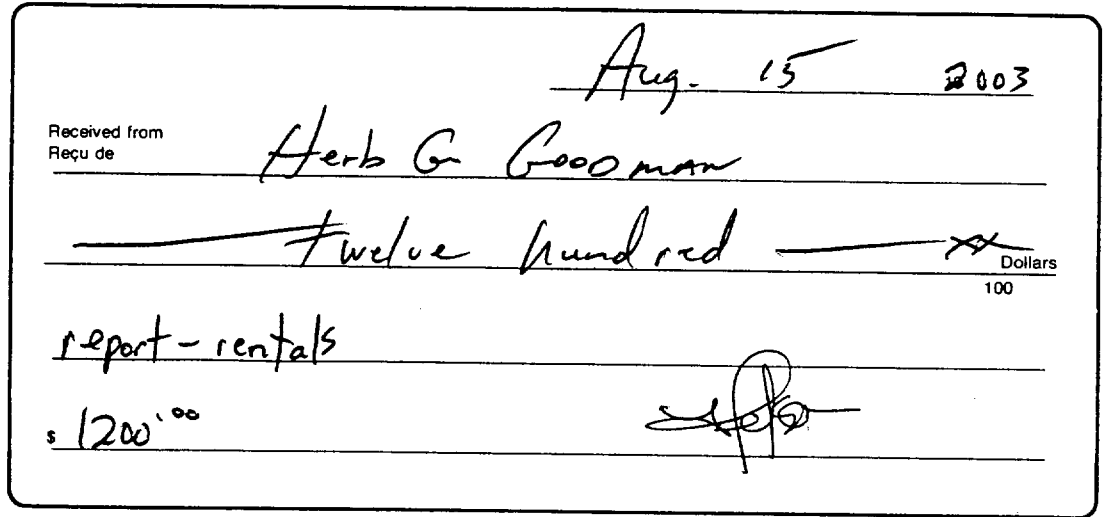 Aug. 15 2003
Received from
Reçu de
Herb G GOODMAN
twelve hundred xx
Dollars
100
report - rentals
$ 1200.00